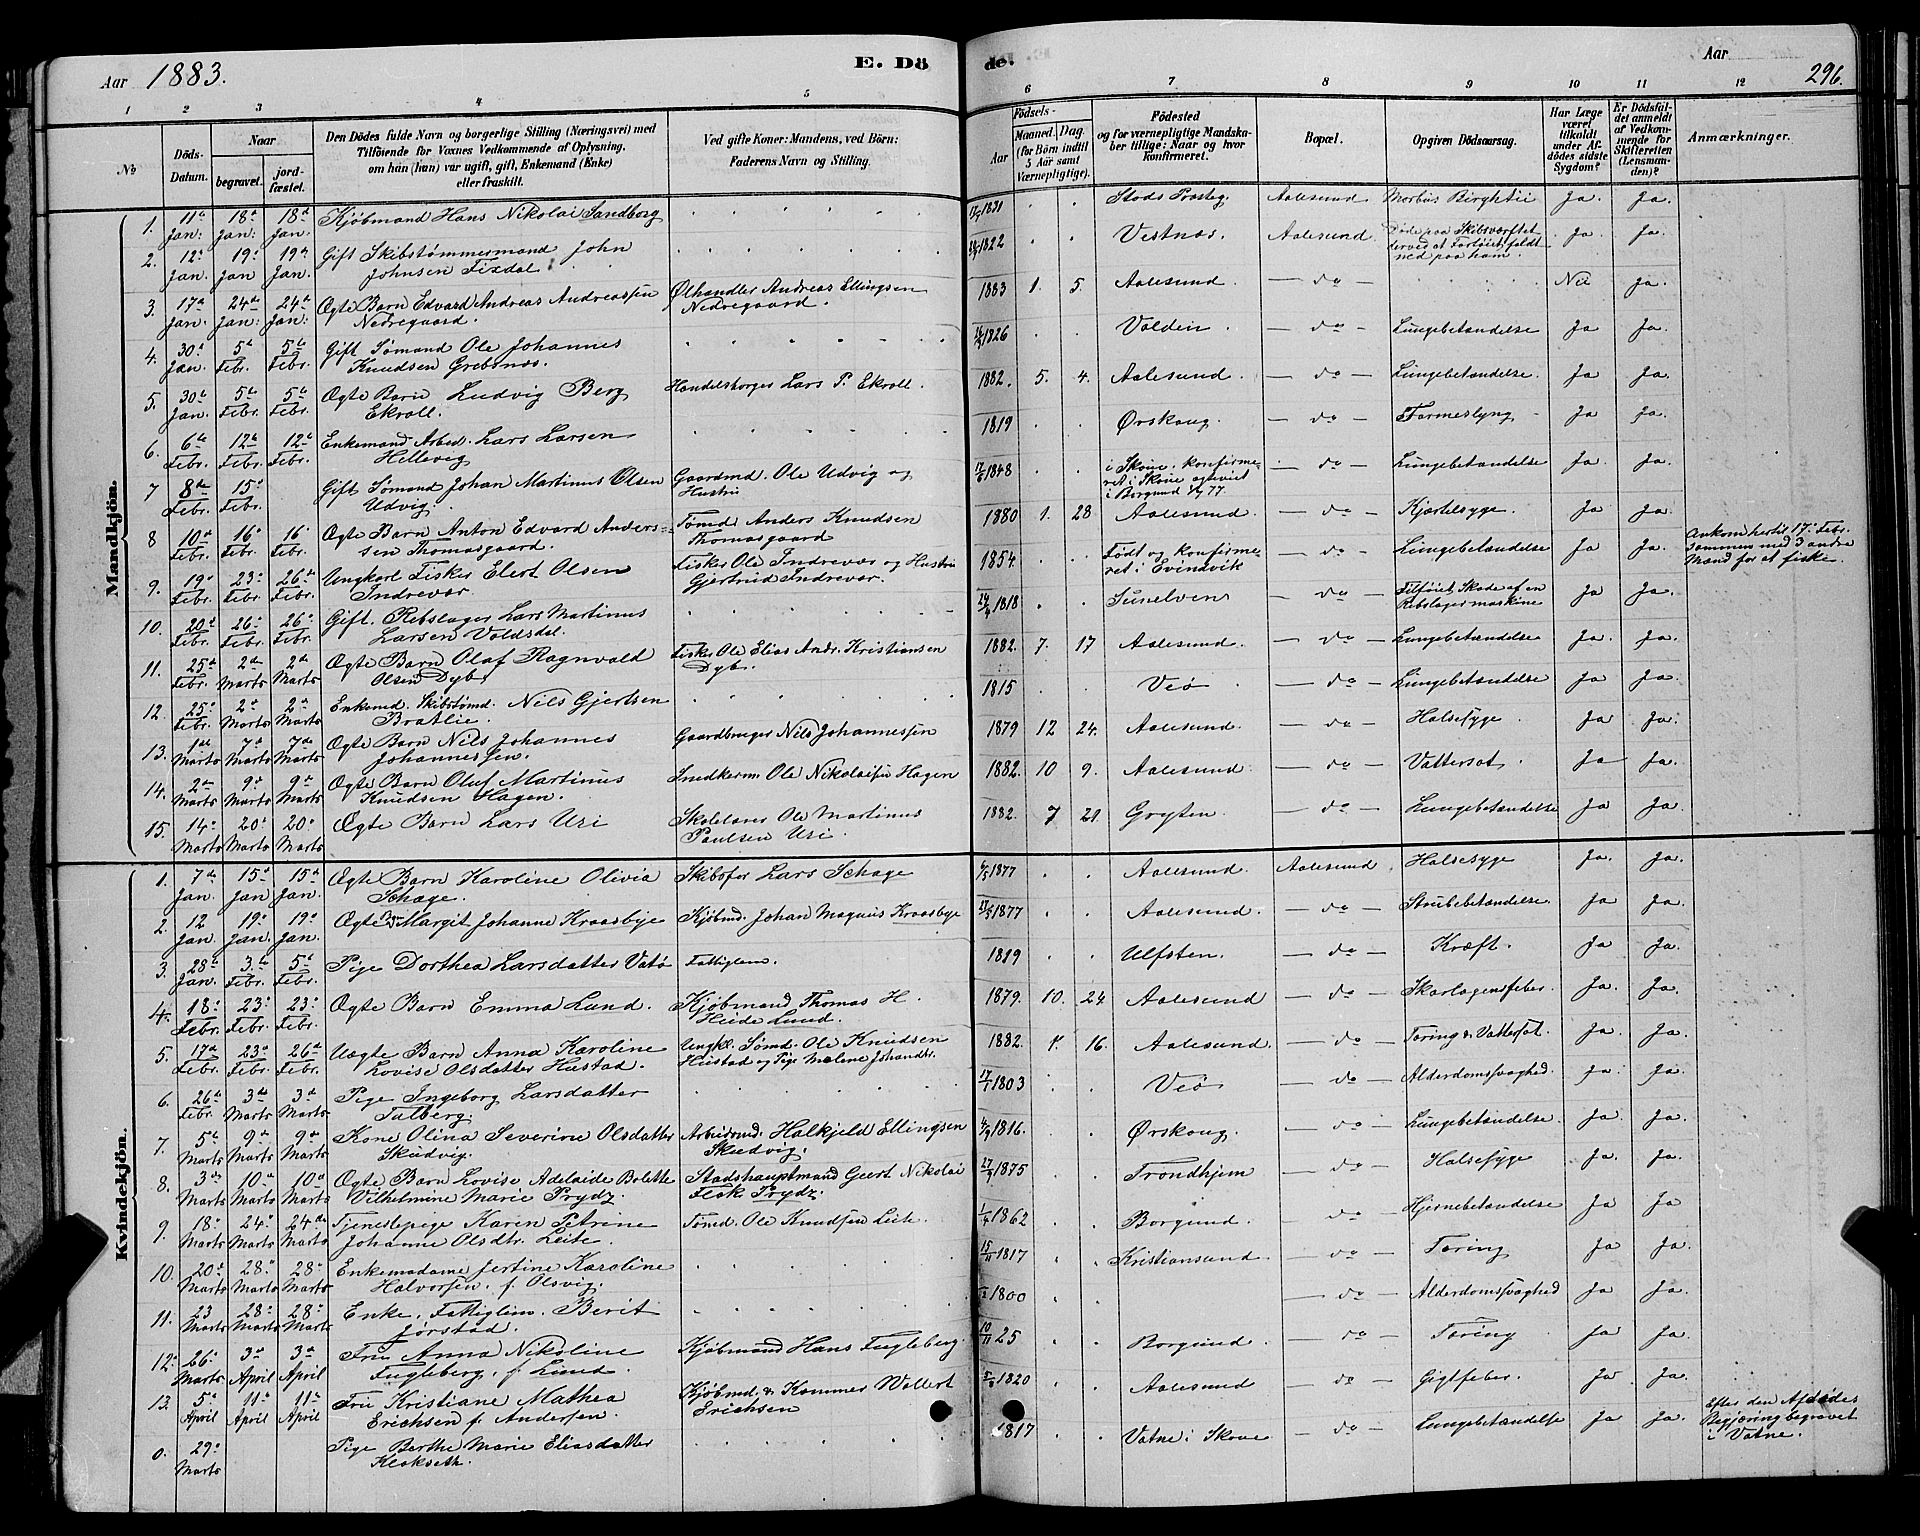 Aar 1883. E. Dö
1 2 3 4 5
Mandkjön.
No Döds-Datum. Naar begravet. jordfæstet. Den Dödes fulde Navn og borgerlige Stilling (Næringsvei) med Tilföiende for Voxnes Vedkommende af Oplysning, om hun (han) var ugift, gift, Enkemand (Enke) eller fraskilt. Ved gifte Koner: Mandens, ved Börn: Faderens Navn og Stilling.
1. 11te Jan: 18de Jan: 18de Jan. Kjøbmand Hans Nikolai Sandborg
2. 12te Jan. 19de Jan 19de Jan. Gift Skibstømmermand John
Johnsen Fixdal.
3. 17de Jan. 24de Jan: 24de Jan: Ægte Barn Edvard Andreas Andreassen Ølhandler Andreas Ellingsen
Nedregaard. Nedregaard.
4. 30te Jan. 5te Febr. 5te Febr. Gift Sømand Ole Johannes
Knudsen Grebsnæs.
5. 30te Jan. 5te Febr. 5te Febr. Ægte Barn Ludvig Berg Handelsborger Lars P. Ekroll.
Ekroll.
6. 6te Febr. 12te Febr. 12te Febr. Enkemand Arbed. Lars Larsen
Hellevig
7 8de Febr. 15de Febr. Gift Sømand Johan Martinus Olsen Gaardmd. Ole Udvig og
Udvig. Hustru
8 10de Febr. 16de Febr. 16 Febr. Ægte Barn Anton Edvard Anders- Tømd. Anders Knudsen
sen Thomasgaard. Thomasgaard
9. 19de Febr. 23de Febr. 26de Febr. Ungkarl Fisker Elert Olsen Fisker Ole Indrevær og Hustru
Indrevær Gjertrud Indrevær.
10. 20de Febr. 26de Febr. 26de Febr. Gift. Rebslager Lars Martinus
Larsen Voldsdal.
11. 25de Febr. 2de Marts 2de Marts Ægte Barn Olaf Ragnvald Fisker Ole Elias Andr. Kristiansen
Olsen Dyb. Dyb.
12. 25de Febr. 2de Marts 2de Marts Enkemd. Skibstømd. Nils Gjertsen
Bratlie.
13. 1ste Marts 7de Marts 7de Marts Ægte Barn Nils Johannes Gaardbruger Nils Johannessen
Johannessen.
14. 2de Marts 9de Marts 9de Marts Ægte Barn Oluf Martinus Snedkerm. Ole Nikolaisen Hagen
Knudsen Hagen.
15. 14de Marts 20de Marts 20de Marts Ægte Barn Lars Uri Skolelærer Ole Martinus
Paulsen Uri.
Kvindekjön.
1. 7de Jan 15de Jan 15de Jan. Ægte Barn Karoline Olivia Skibsfør Lars Schage
Schage.
2. 12 Jan. 19de Jan. 19de Jan. Ægte Barn Margit Johanne Kraasbye Kjøbmd. Johan Magnus Kraasbye
3. 28de Jan. 3de Febr. 5te Febr. Pige Dorthea Larsdatter Vatø Fattiglem.
4. 18de Febr. 23de Febr. 23de Febr. Ægte Barn Emma Lund. Kjøbmand Thomas H.
Heide Lund.
5. 17de Febr. 23de Febr. 26de Febr. Uægte Barn Anna Karoline Ungkl. Sømd. Ole Knudsen
Lovise Olsdatter Hustad. Hustad og Pige Malene Johansdtr.
6. 26de Febr. 3de Marts 3de Marts Pige Ingeborg Larsdatter
Talberg.
7. 5te Marts 9de Marts 9de Marts Kone Olina Severine Olsdatter Arbeidsmd. Halkjeld Ellingsen
Skudvig. Skudvig.
8. 3de Marts 10de Marts 10de Marts Ægte Barn Lovise Adelaide Bolette Stadshauptmand Geert Nikolai
Vilhelmine Marie Prydz. Flok Prydz.
9. 18de Marts 24de Marts 24de Marts Tjenestepige Karen Petrine Tømd. Ole Knudsen Leite.
Johanne Olsdtr. Leite.
10. 20de Marts 28de Marts 28de Marts Enkemadame Jertine Karoline
Halvorsen. f. Olsvig.
11. 23 Marts 28de Marts 28de Marts Enke. Fattiglem. Berit
Jørstad.
12. 26de Marts 3de April 3de April Fru Anna Nikoline Kjøbmand Hans Fugleberg.
Fugleberg. f. Lund.
13. 5te April 11te April 11te April Fru Kristiane Mathea Kjøbmd. & Kæmner Wollert
Erichsen f. Andersen. Erichsen
0. 29de Marts Pige Barthe Marie Eliasdatter
Klokseth.
de. Aar 296.
6 7 8 9 10 11 12
Aar Födsels-Maaned. Dag. (for Börn indtil 5 Aar samt Værnepligtige). Födested og for værnepligtige Mandskaber tillige: Naar og hvor konfirmeret. Bopæl. Opgiven Dödsaarsag. Har Læge været tilkaldt under Afdödes sidste Sygdom? Er Dödsfaldet anmeldt af Vedkommende for Skifteretten (Lensmanden)? Anmærkninger.
1831 Stods Prsteg. Aalesund Morbus Brightii Ja. Ja.
1822 Vestnæs. Aalesund. Døde paa Skibsværftet Ja. Ja.
derved at Fartøiet feldt
ned paa ham.
1883 1. 5. Aalesund. do Nei Ja.
1826 Volden. do Lungebetændelse Ja Ja.
1882. 5. 4. Aalesund. do Lungebetændelse. Ja Ja.
1819 Ørskoug. do Tarmeslyng Ja Ja.
17/6 1848 i Skoue. konfirme- do Lungebetændelse Ja. Ja.
ret i Skoue og viet
i Borgund 77.
1880 1. 28 Aalesund do Kjertelsyge. Ja Ja.
1854. Født og konfirme- do Lungebetændelse Ja Ja. Ankom hertil 17de Febr.
ret i Evindvik sammen med 3 andre
Mand for at fiske.
1818 Sunelven do Tilføiet Skade af en Ja Ja.
Rebslagermaskine
1882. 7. 17 Aalesund. do Lungebetændelse Ja. Ja.
1815 Veø do Lungebetændelse Ja. Ja.
1879 12 24. Aalesund. do Halsesyge. Ja Ja.
1882. 10 9. Aalesund. do Vattersot. Ja Ja.
1882. 7 21 Gryten. do Lungebetændelse Ja Ja.
1877 Aalesund. Aalesund. Halsesyge Ja. Ja.
1877 Aalesund. do Strubebetændelse. Ja Ja.
1819 Ulfsten. do Kræft. Ja Ja.
1879. 10. 24 Aalesund do Skarlagensfeber. Ja. Ja.
1882. 4. 16. Aalesund. do Tæring & Vattersot. Ja. Ja.
17/1 1803 Veø do Alderdomssvaghed. Ja. Ja.
1816. Ørskoug. do Lungebetændelse. Ja. Ja.
1875 Trondhjem do Halsesyge Ja. Ja.
1862 Borgund. do Hjernebetændelse Ja Ja
15/11 1817 Kristiansund do Tæring Ja Ja.
1800 do Alderdomssvaghed Ja Ja.
10/11 25 Borgund do Tæring Ja Ja.
1820 Aalesund do Gigtfeber. Ja. Ja.
1817 Vatne i Skoue do Lungebetændelse Ja Ja. Efter den Afdødes
Begjæring begravet
i Vatne.